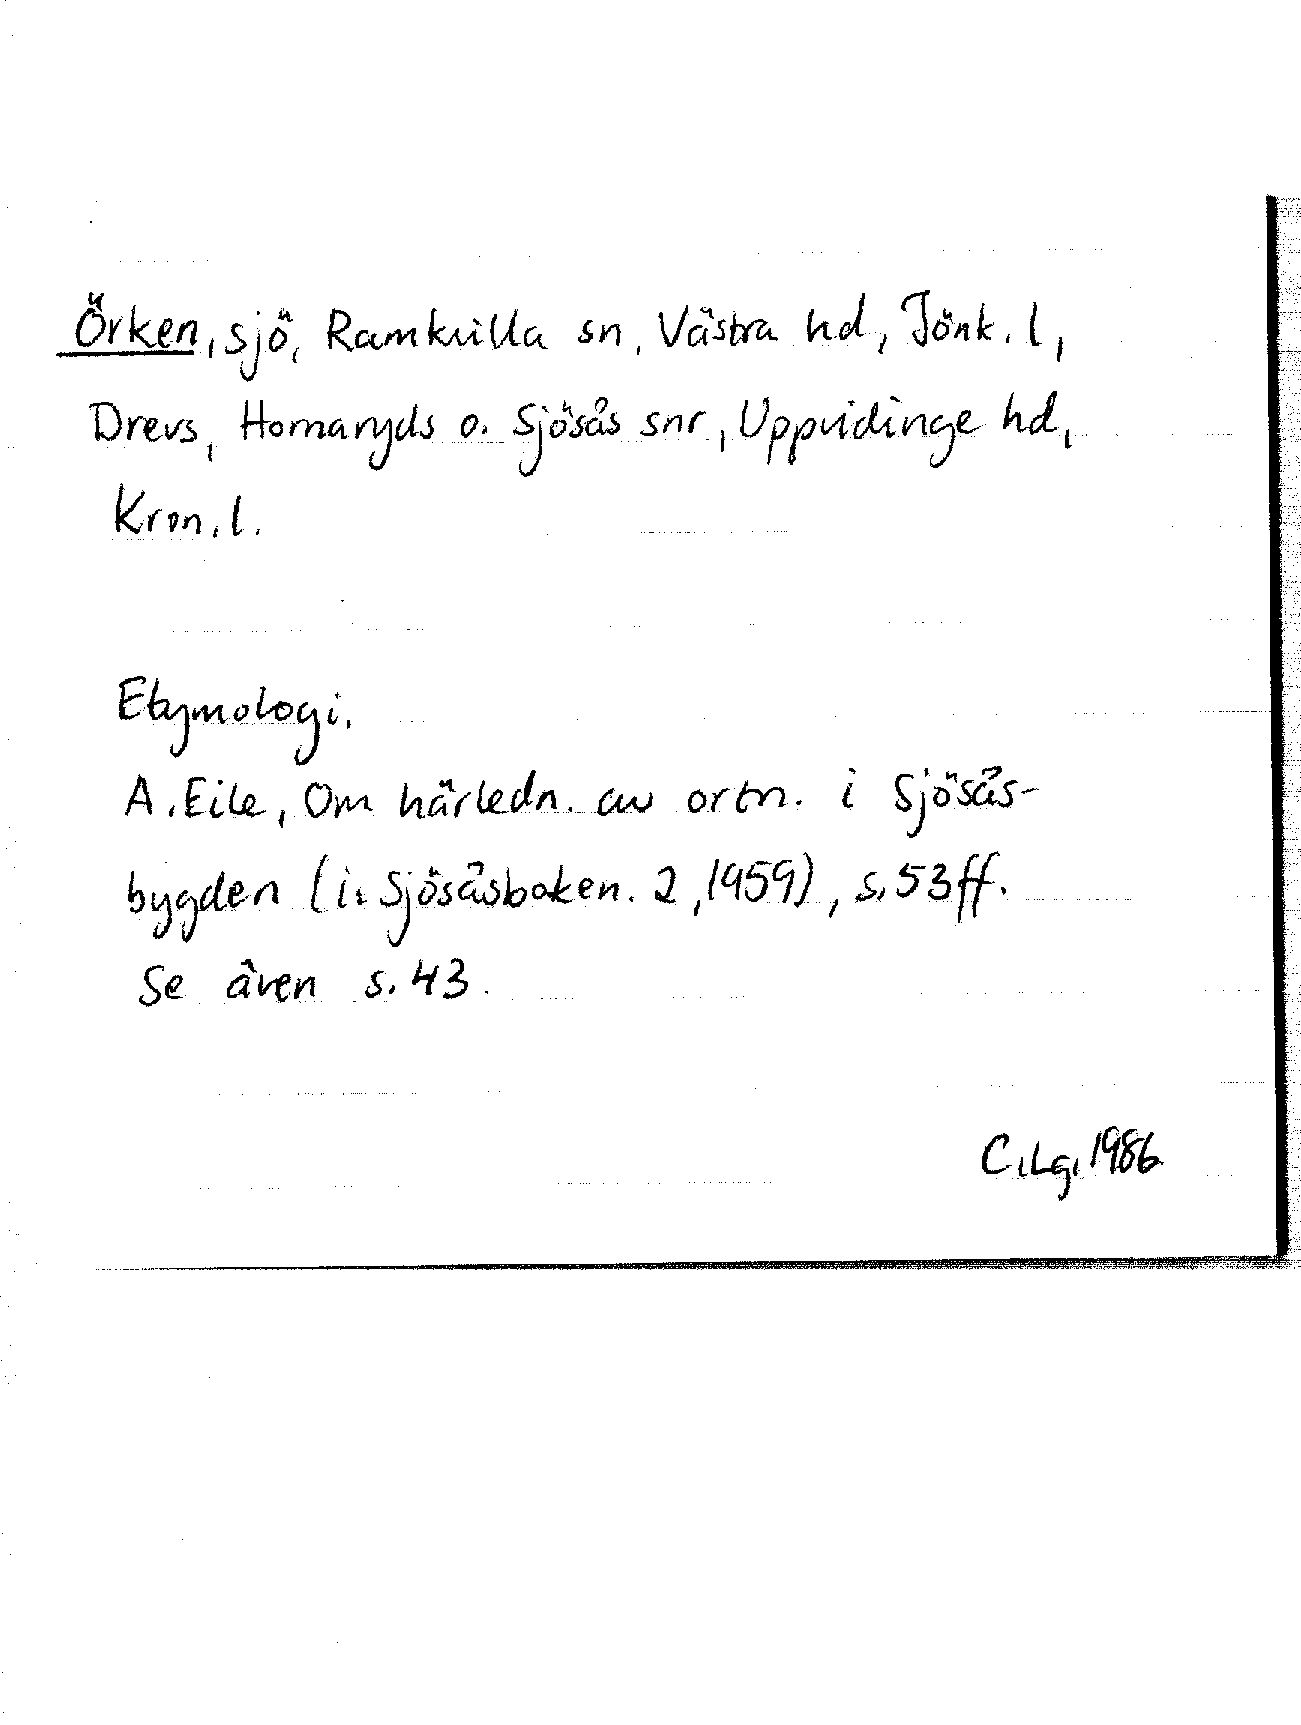 Örken, sjö, Ramkvilla sn, Västra hd, Jönk. l,
Drevs, Hornaryds o. Sjösås snr, Uppvidinge hd,
Kron. l.
Etymologi.
A. Eile, Om härledn. av ortn. i Sjösås-
bygden (i: Sjösåsboken. 2, 1959), s. 53ff.
Se även s. 43.
C. Lg. 1986